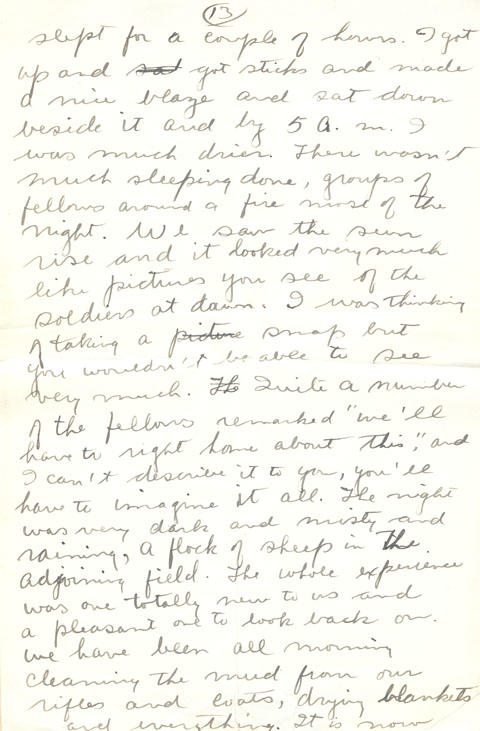 13
slept for a couple of hours. I got
up and sat got sticks and made
a nice blaze and sat down
beside it and by 5 a. m. I
was much drier. There wasn't
much sleeping done, groups of
fellows around a fire most of the
night. We saw the sun
rise and it looked very much
like pictures you see of the
soldiers at dawn. I was thinking
of taking a picture snap but
you wouldn't be able to see
very much. Th Quite a number
of the fellows remarked "we'll
have to right home about this", and
I can't describe it to you, you'll
have to imagine it all. The night
was very dark and misty and
raining, a flock of sheep in the
adjoining field. The whole experience
was one totally new to us and
a pleasant one to look back on.
we have been all morning
cleaning the mud from our
rifles and coats, drying blankets
and everything. It is now